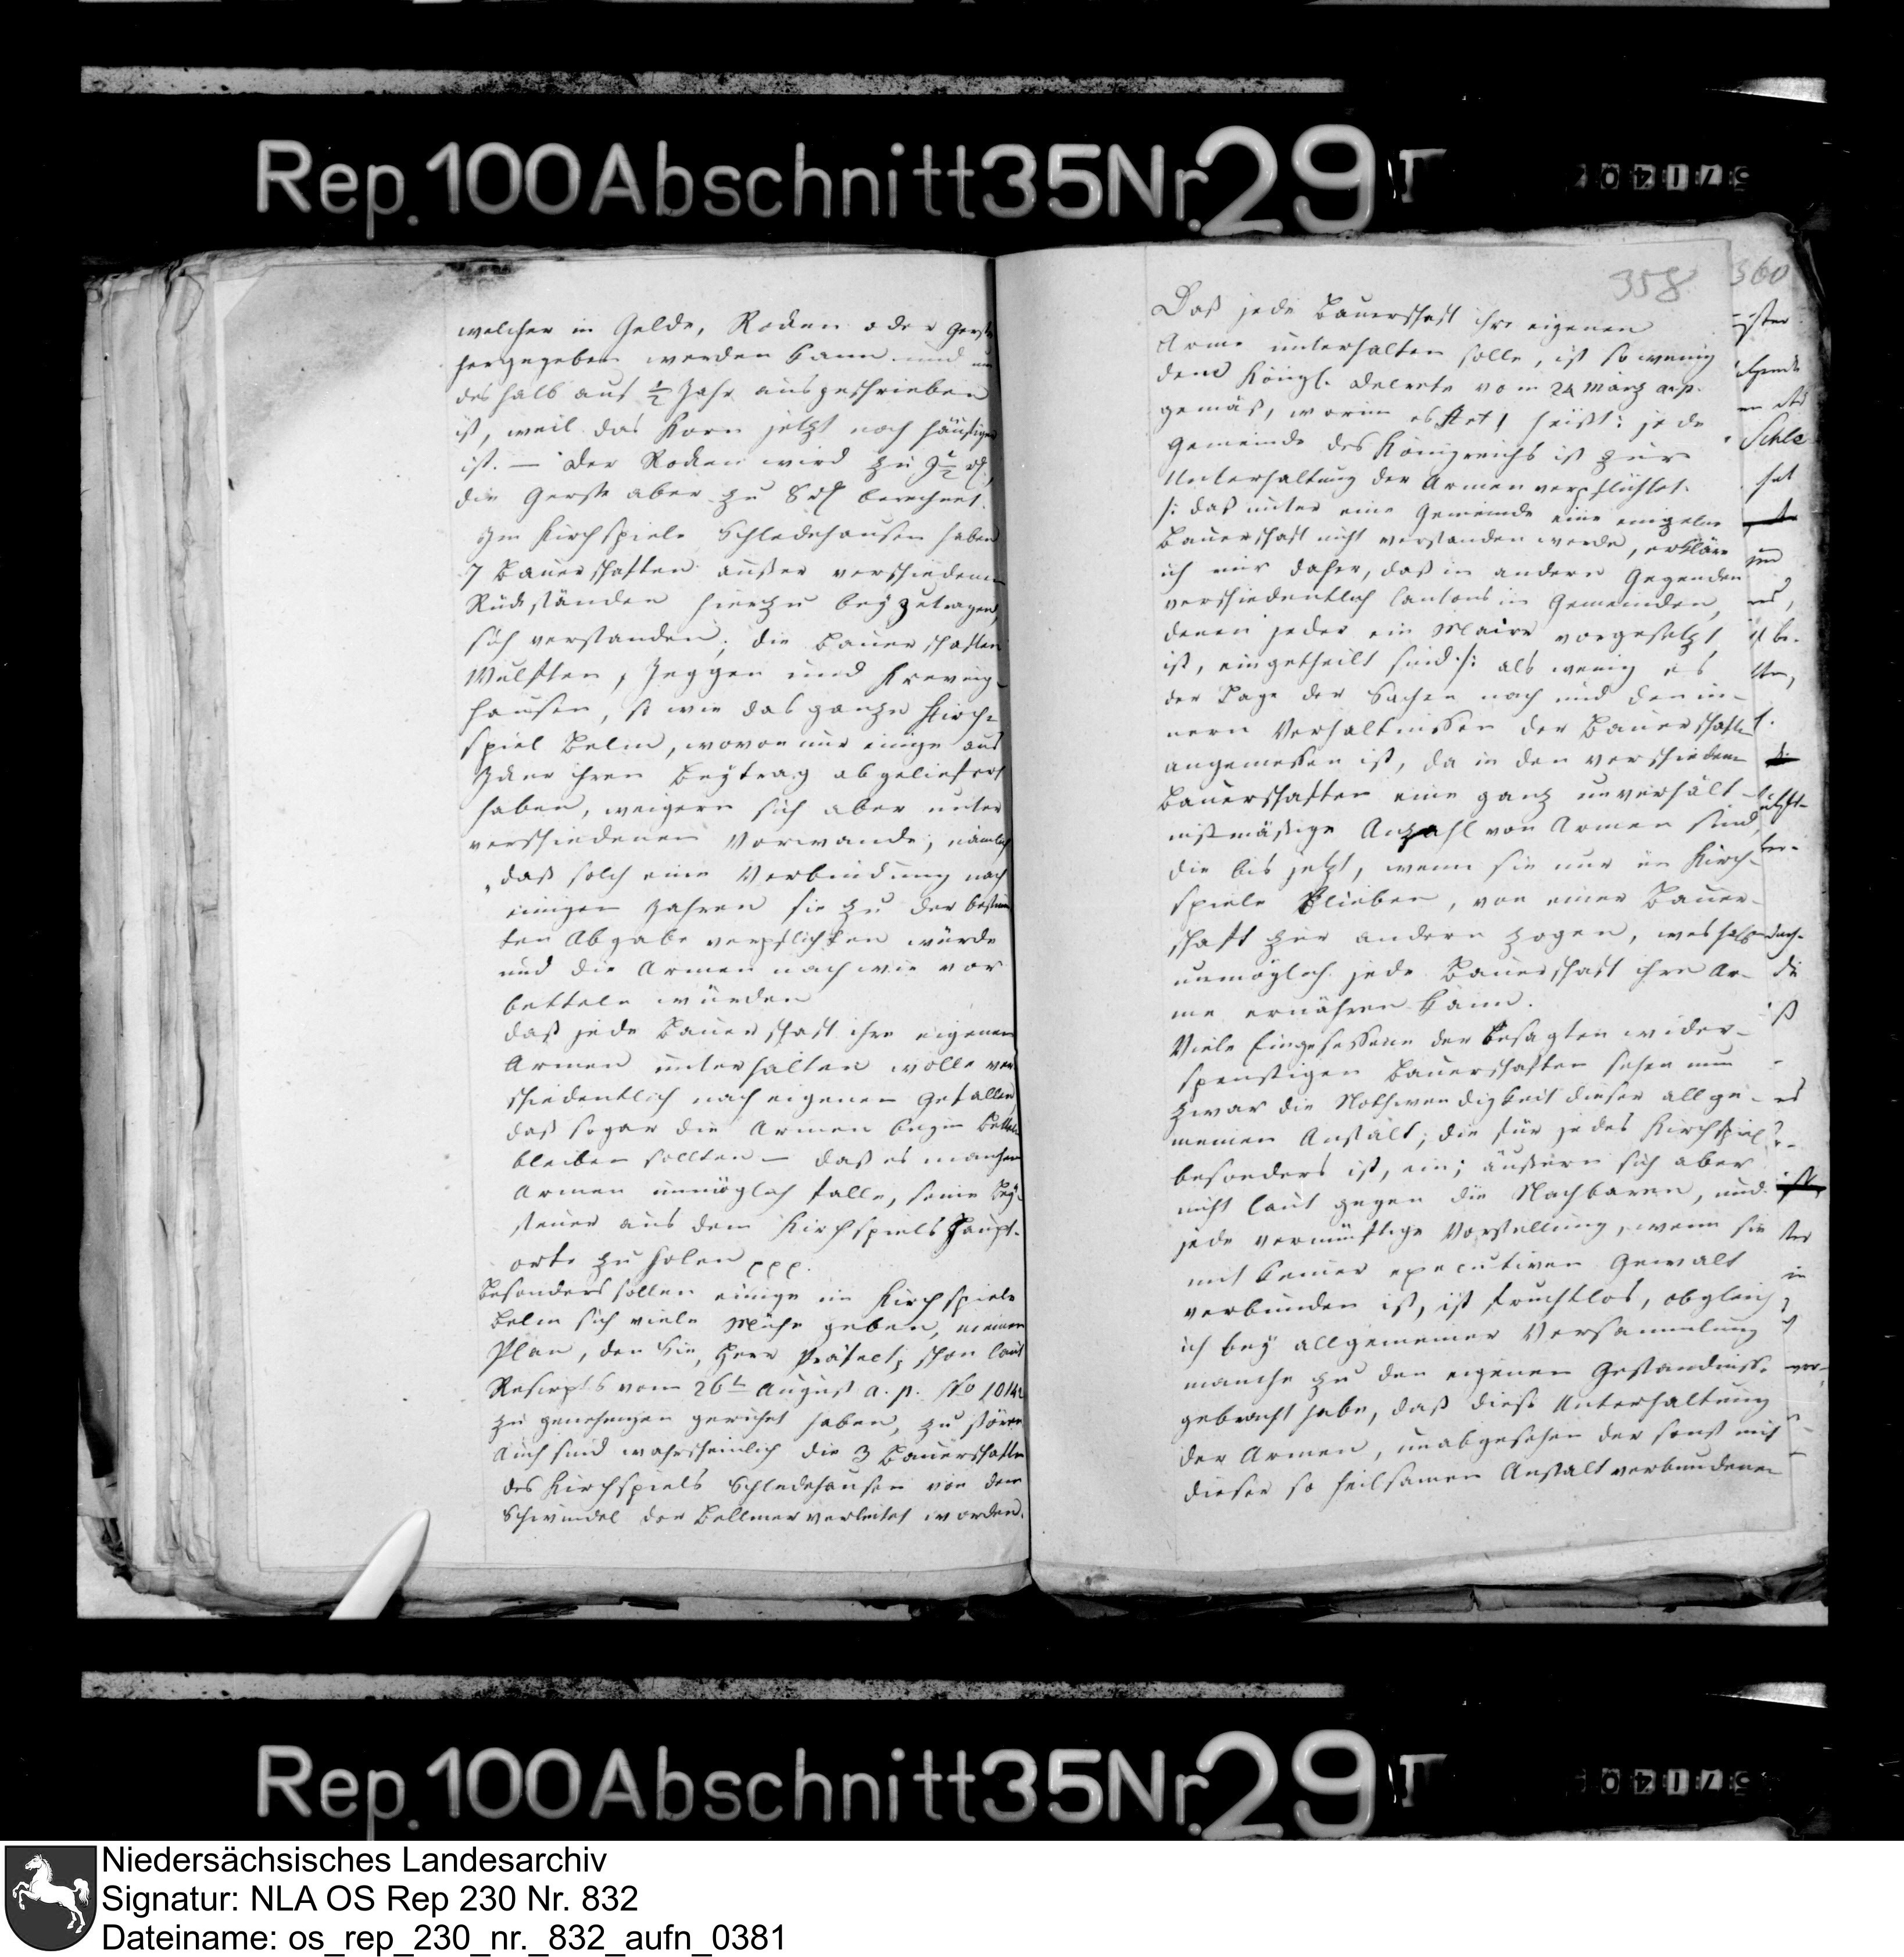 Rep. 100 Abschnitt 35 Nr. 29 I
welcher in Gelde, Rocken oder Gerste
hergegeben werden kann und nur
deshalb auf ½ Jahr ausgeschrieben
ist, weil das Korn jetzt noch häufiger
ist. — Der Rocken wird zu 9½
die Gerste aber zu 8 berechnet.
Im Kirchspiele Schledehausen haben
7 Bauerschaften außer verschiedenen
Rückständen hierzu beyzutragen,
sich verstanden; die Bauerschaften
Wulften, Jeggen und Kreving-
hausen, so wie das ganze Kirch-
spiel Belm, wovon nur einige aus
Icker ihren Beytrag abgeliefert
haben, weigern sich aber unter
verschiedenen Vorwande; nämlich
„daß solch eine Verbindung nach
einigen Jahren sie zu der bestimm
ten Abgabe verpflichten würde
und die Armen nach wie vor
betteln würden
daß jede Bauerschaft ihre eigenen
Armen unterhalten wolle ver
schiedentlich nach eigenen Gefallen
daß sogar die Armen beym Betteln
bleiben sollten — daß es manchen
Armen unmöglich falle, seine Bey-
steuer aus dem Kirchspiels Haupt-
orte zu holen
Besonders sollen einige im Kirchspiele
Belm sich viele Mühe geben, meinen
Plan, den Sie, Herr Präfect, schon laut
Rescripts vom 26t August a. p. No 1014
zu genehmigen geruhet haben, zu stören
Auch sind wahrscheinlich die 3 Bauerschaften
des Kirchspiels Schledehausen von dem
Schwindel der Bellmer verleitet worden.
358
360
Daß jede Bauerschaft ihre eigenen
Arme unterhalten solle, ist so wenig
dem Königl. Decrete vom 24 März a. p.
gemäß, worin es Art 1 heißt: jede
Gemeinde des Königreichs ist zur
Unterhaltung der Armen verpflichtet.
/: daß unter eine Gemeinde eine einzelne
Bauerschaft nicht verstanden werde, erkläre
ich mir daher, daß in andern Gegenden
verschiedentlich Cantons in Gemeinden,
denen jeder ein Maire vorgesetzt
ist, eingetheilt sind :/ als wenig es
der Lage der Sachen nach und den in-
nern Verhältnissen der Bauerschaften
angemessen ist, da in den verschiedenen
Bauerschaften eine ganz unverhält-
nißmäßige Anzahl von Armen sind,
die bis jetzt, wenn sie nur im Kirch-
spiele blieben, von einer Bauer-
schaft zur andern zogen, weshalb
unmöglich jede Bauerschaft ihre Ar-
me ernähren kann.
Viele Eingesessene der besagten wider-
spenstigen Bauerschaften sehen nun
zwar die Nothwendigkeit dieser allge-
meinen Anstalt, die für jedes Kirchspiel
besonders ist, ein; äußern sich aber
nicht laut gegen die Nachbaren, und
jede vernünftige Vorstellung, wenn sie
mit keiner executiven Gewalt
verbunden ist, ist fruchtlos, obgleich
ich bey allgemeiner Versammlung
manche zu den eigenen Geständnisse
gebracht habe, daß diese Unterhaltung
der Armen, unabgesehen der sonst mit
dieser so heilsamen Anstalt verbundenen
Schle
hat
die
Rep. 100 Abschnitt 35 Nr. 29 I
Niedersächsisches Landesarchiv
Signatur: NLA OS Rep 230 Nr. 832
Dateiname: os_rep_230_nr._832_aufn_0381